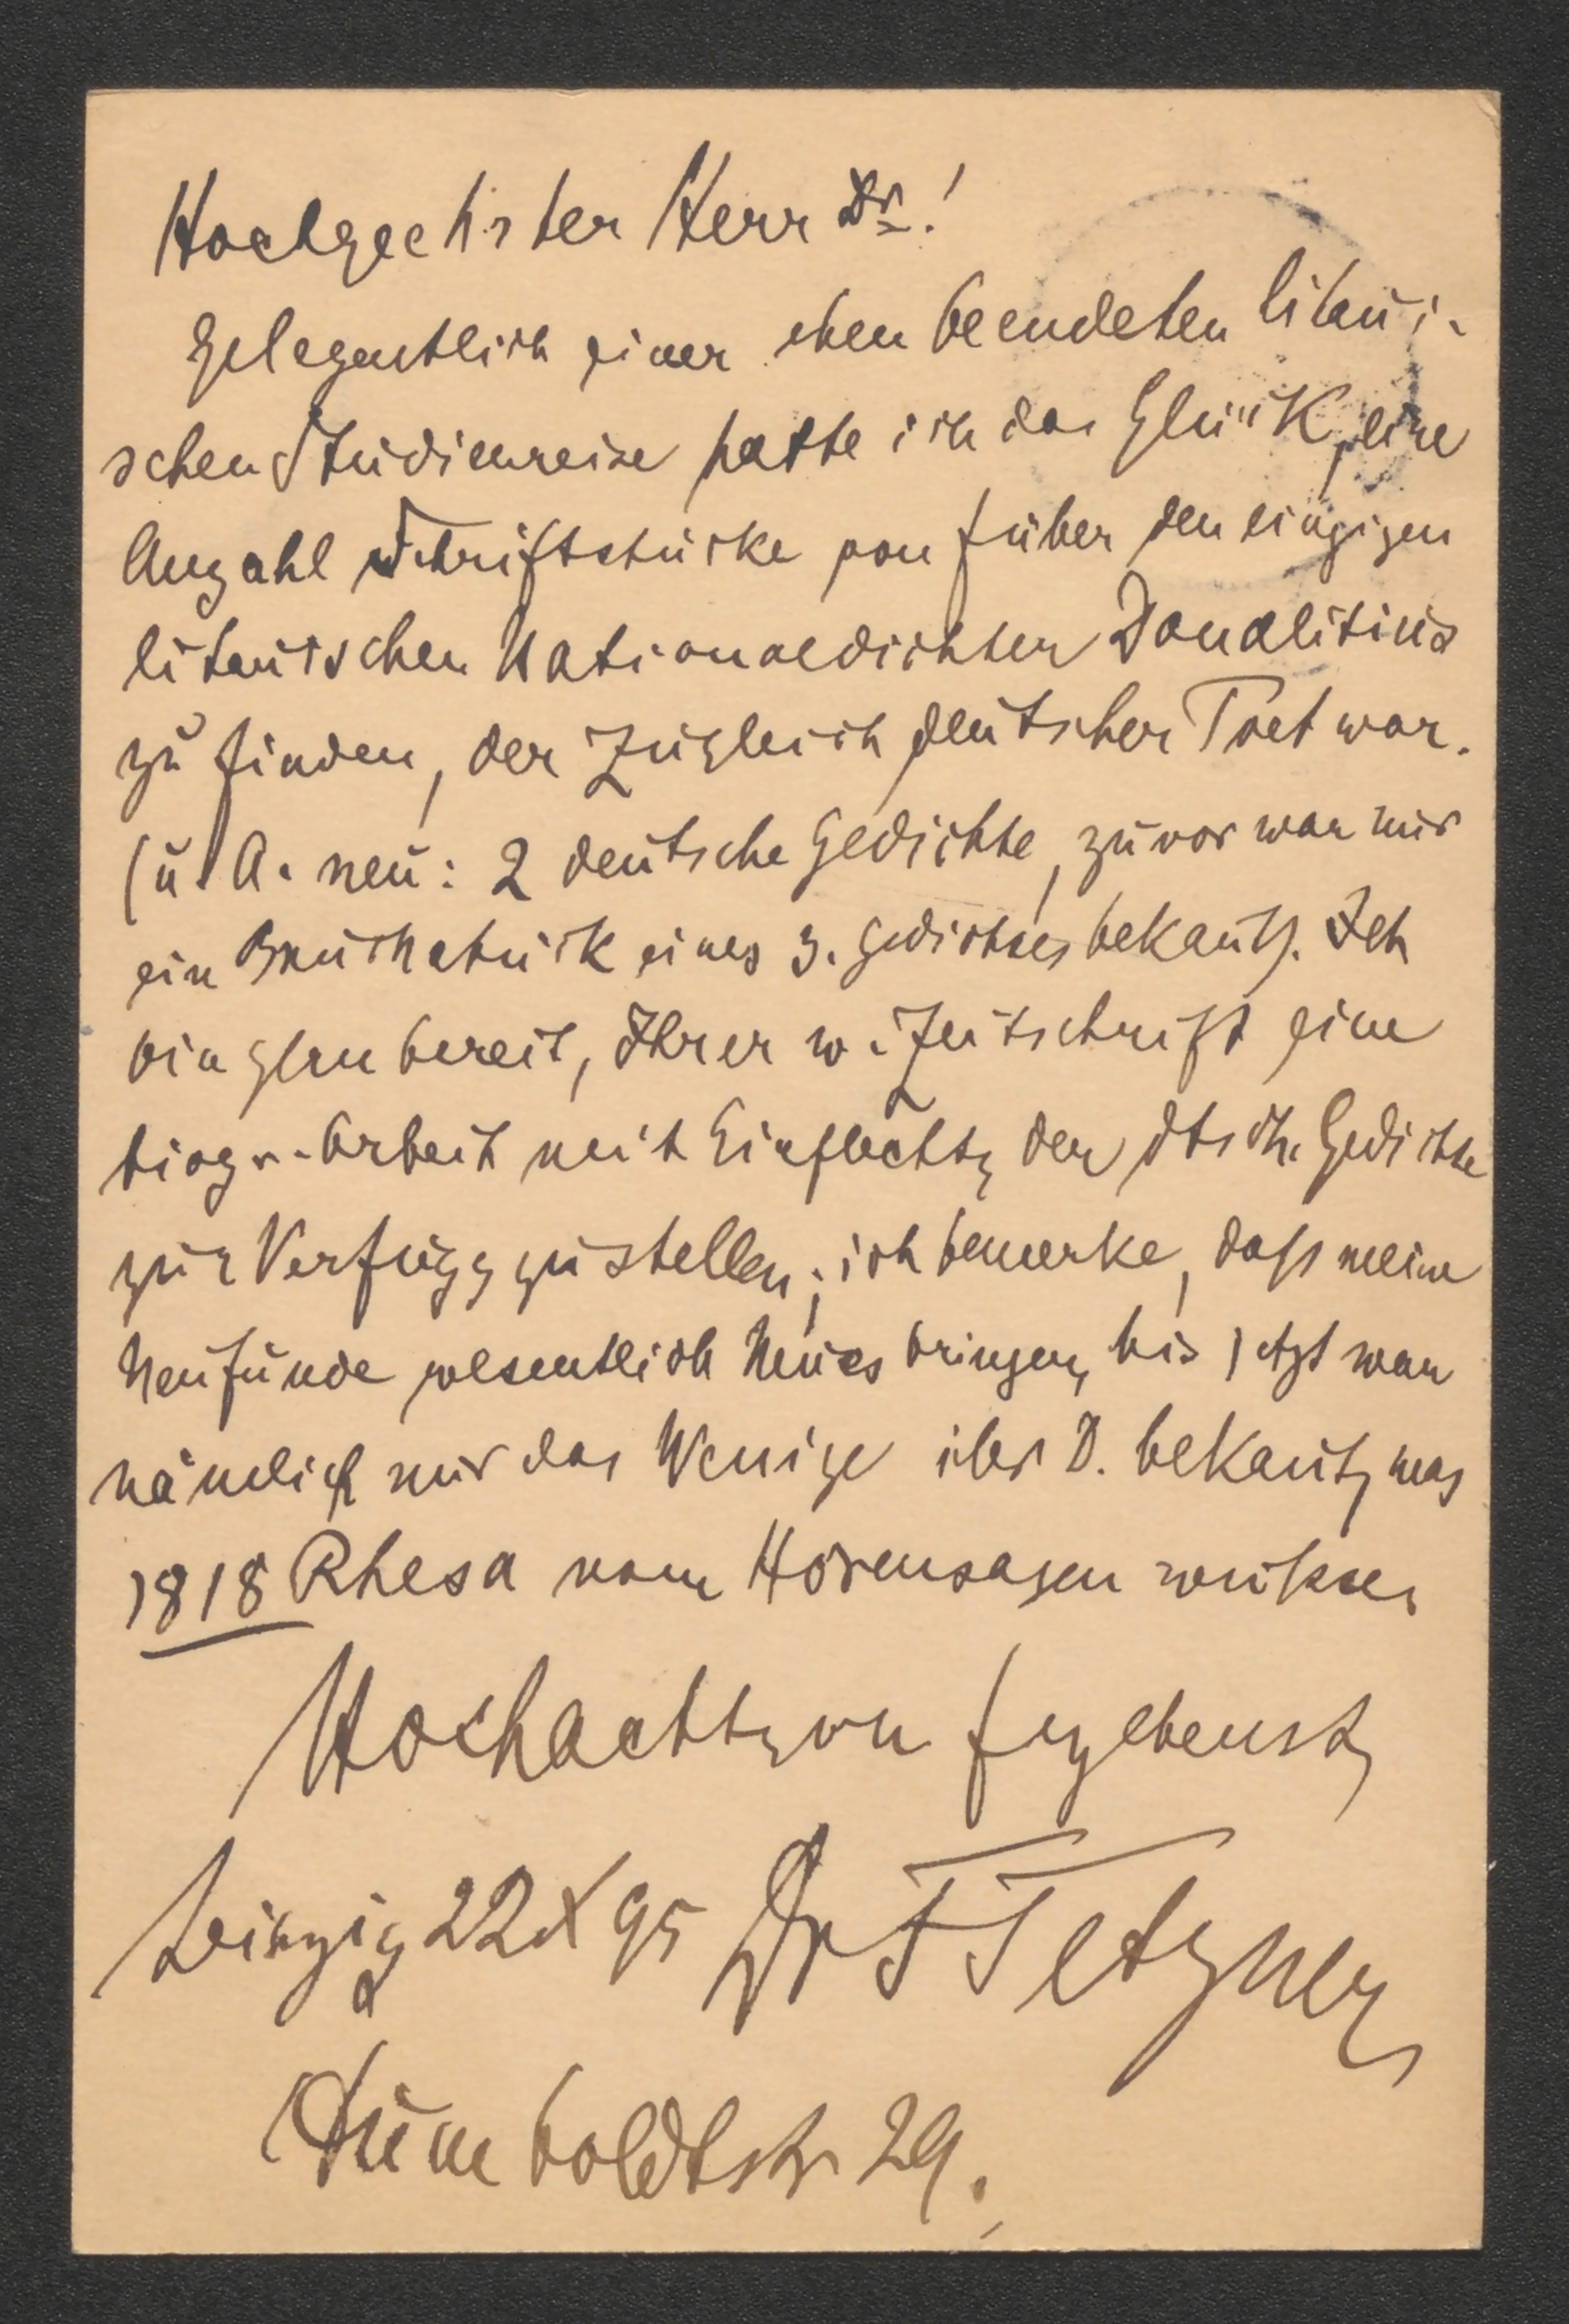 Hochgeehrter Herr Dr.!
Gelegentlich einer eben beendeten litaui-
schen Studienreise hatte ich das Glück, eine
Anzahl Schriftstücke von u über den einzigen
litauischen Nationaldichter Donalitius
zu finden, der zugleich deutscher Poet war.
(u. A. neu: 2 deutsche Gedichte, zuvor war nur
ein Bruchstück eines 3. Gedichtes bekannt). Ich
bin gern bereit, Ihrer w. Zeitschrift eine
biogr. Arbeit mit Einflechtg der dtsch. Gedichte
zur Verfügg zu stellen; ich bemerke, daß meine
Neufunde wesentlich Neues bringen, bis jetzt war
nämlich nur das Wenige über D. bekannt, was
1818 Rhesa vom Hörensagen wußte.
Hochachtgsvoll ergebenst
Leipzig 22 X 95 Dr F Tetzner
Humboldtstr 29.